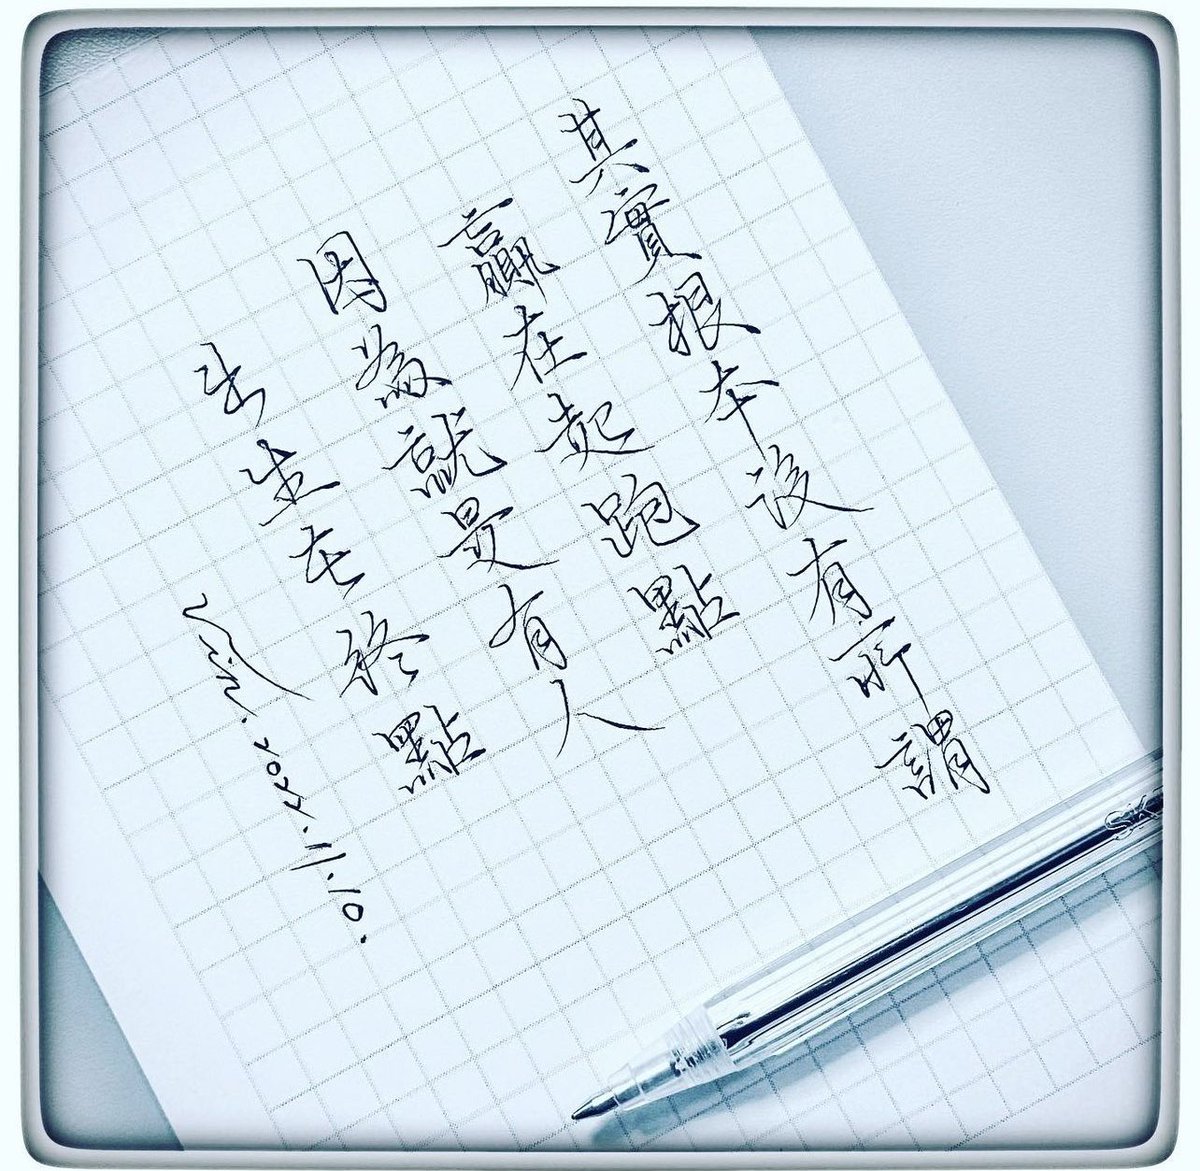 其實根本沒有所謂
贏在起跑點
因為就是有人
出生在終點
2022.11.10.
SK